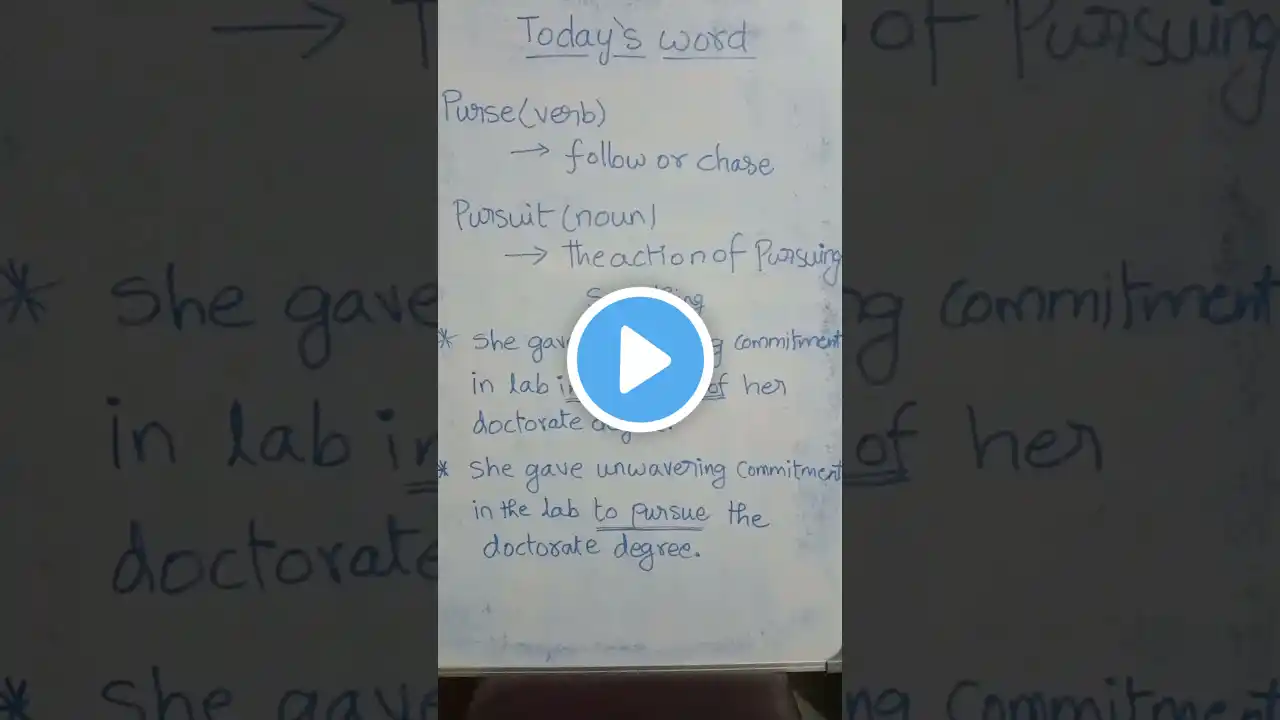 Today's word
Purse (verb)
→ follow or chase
Pursuit (noun)
→ the action of Pursuing
* She gave commitment
in lab of her
doctorate
* She gave unwavering commitment
in the lab to pursue the
doctorate degree.